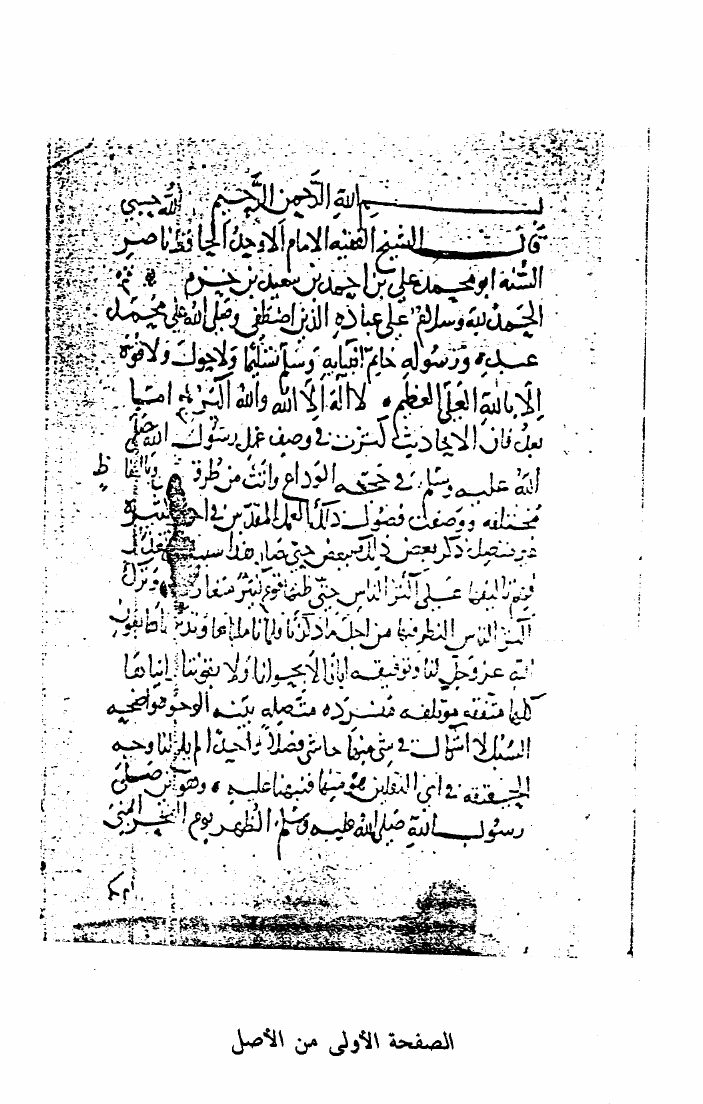 بسم الله الرحمن الرحيم الله حسبي
قال الشيخ الفقيه الامام الاوحد الحافظ ناصر
السنه ابو محمد علي بن احمد بن سعيد بن حزم
الحمد لله وسلام على عباده الذين اصطفى وصلى الله على محمد
عبده ورسوله خاتم انبيايه وسلم تسليما ولا حول ولا قوة
الا بالله العلي العظيم لا اله الا الله والله اكبر اما
بعد فان الاحاديث كثرت في وصف عمل رسول الله صلى
الله عليه وسلم في حجه الوداع واتت من طرق
مختلفه ووصفت فصول ذلك العمل المقدس في
ذكر بعض ذلك بعض حتى صار هذا
على اكثر الناس حتى ظنها قوم كثير وترك
اكثر الناس النظر فيها من اجل ما ذكرنا
الله عز وجل لنا وتوفيقه ايانا لا بحولنا ولا بقوتنا
كلها متفقه موتلفه متصله بينه الوجوه واضحه
السبل لا اشكال في شي منها حاشى فصلا واحدا لم يلح لنا وجه
الحقيقه في اي النقلين هو منها فنبهنا عليه وهو اين صلى
رسول الله صلى الله عليه وسلم الظهر يوم النحر
الصفحة الأولى من الأصل